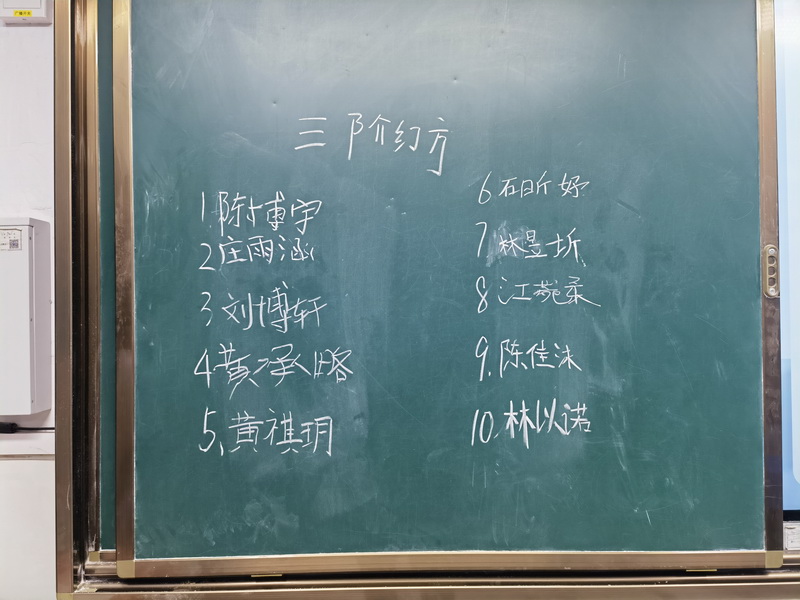 三阶幻方
1.陈博宇
2.庄雨涵
3.刘博轩
4.黄承略
5.黄祺玥
6石昕妤
7林昱圻
8江菀柔
9.陈佳沐
10.林以诺